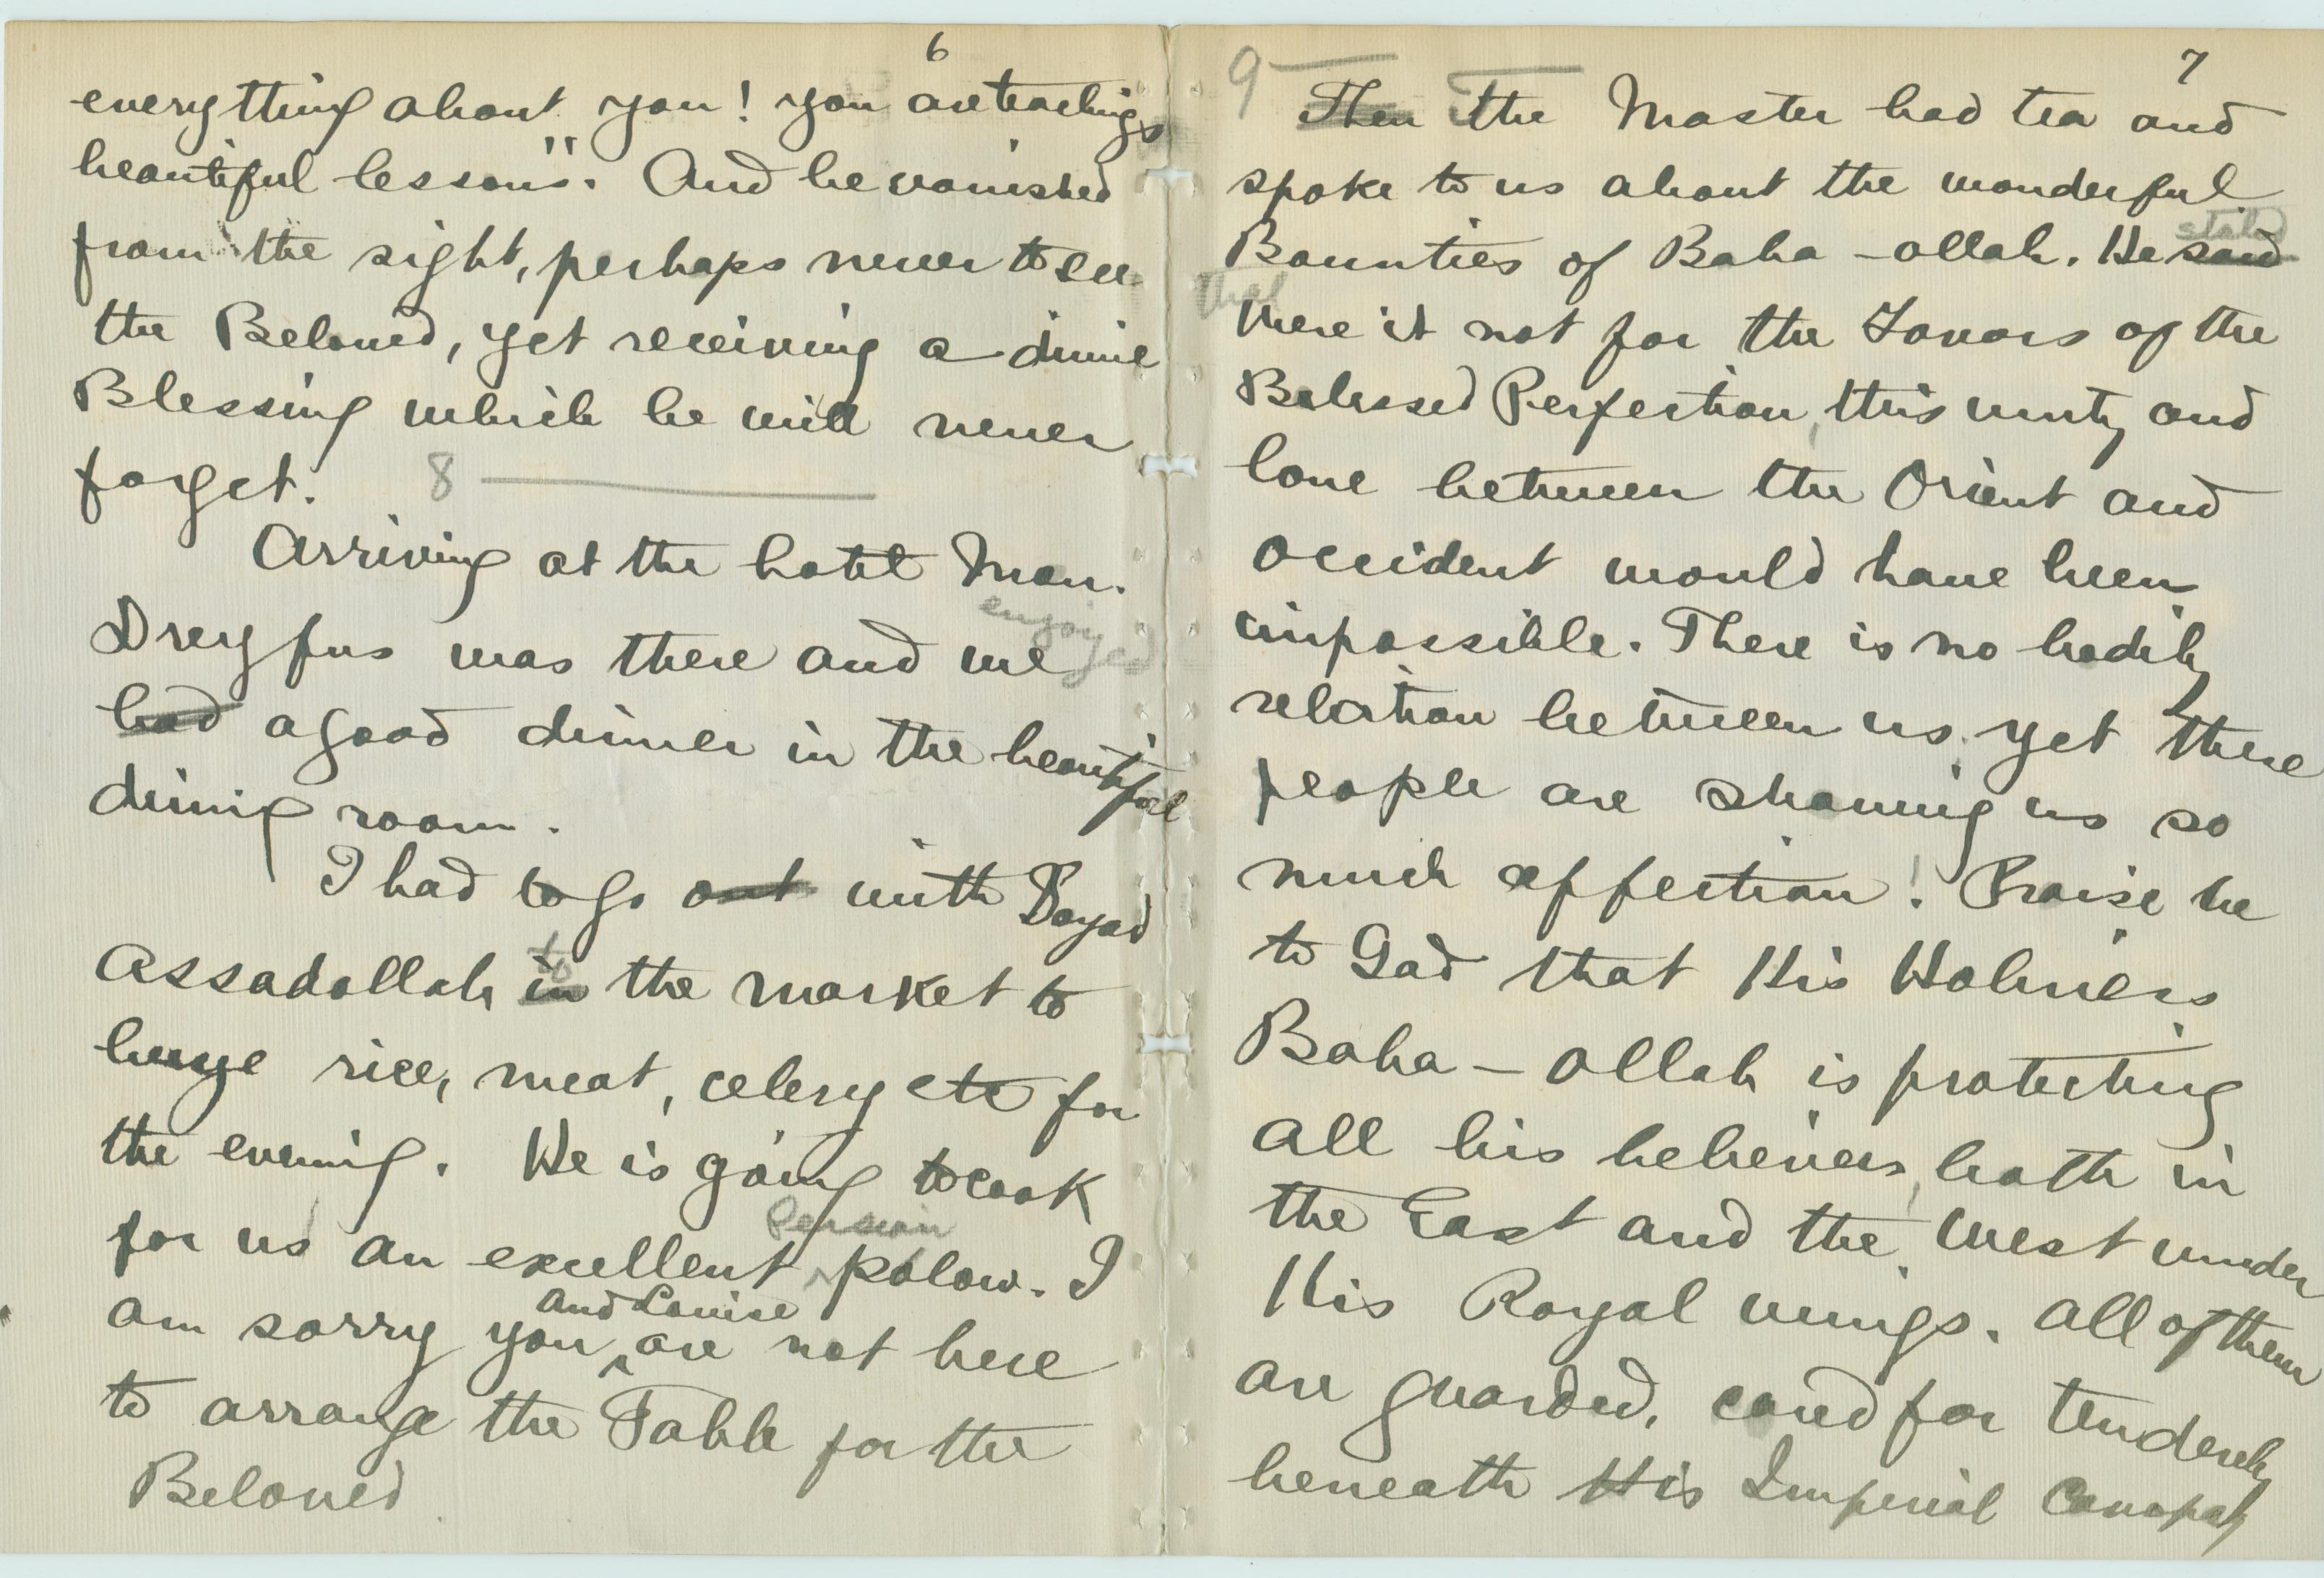 6
everything about you! you are teachings
beautiful lessons". And he vanished
from the sight, perhaps never to see
the Beloved, yet receiving a divine
Blessing which he will never
forget. 8
Arriving at the hotel Mon.
enjoyed
Dreyfus was there and we
had a good dinner in the beautiful
dining room.
I had to go out with Sayad
to
Assadollah in the market to
buye rice, meat, celery etc for
the evening. He is going to cook
Persian
for us an excellent polow. I
and Louise
am sorry you ^ are not here
to arrange the Table for the
Beloved.
7
9 Then the Master had tea and
spoke to us about the wonderful
stated
Bounties of Baha-ollah. He said
that
were it not for the Favors of the
Belessed Perfection, this unity and
love between the Orient and
Occident would have been
impossible. There is no bodily
relation between us, yet these
people are showing us so
much affection! Praise be
to God that His Holiness
Baha-ollah is protecting
all his believers, both in
the East and the West under
His Royal wings. All of them
are guarded, cared for tenderly
beneath His Imperial Canopy